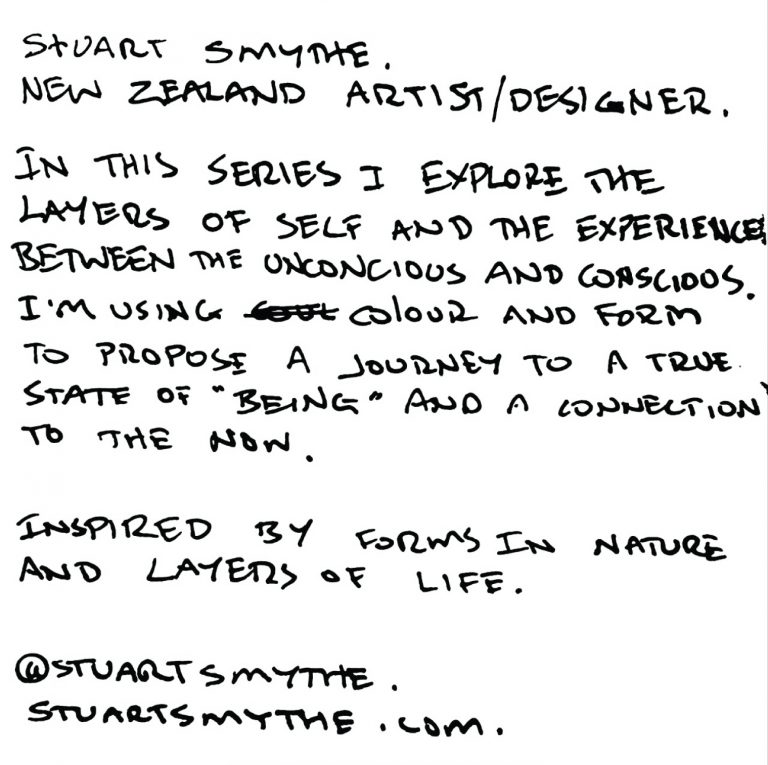 STUART SMYTHE.
NEW ZEALAND ARTIST/DESIGNER.
IN THIS SERIES I EXPLORE THE
LAYERS OF SELF AND THE EXPERIENCE
BETWEEN THE UNCONCIOUS AND CONSCIOUS.
I'M USING COLOUR AND FORM
TO PROPOSE A JOURNEY TO A TRUE
STATE OF "BEING" AND A CONNECTION
TO THE NOW.
INSPIRED BY FORMS IN NATURE
AND LAYERS OF LIFE.
@STUARTSMYTHE.
STUARTSMYTHE.COM.